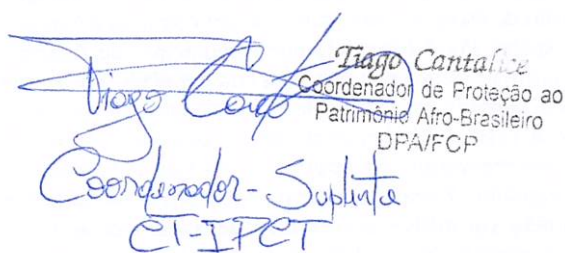 Tiago Cantalice
Coordenador de Proteção ao
Patrimônio Afro-Brasileiro
DPA/FCP
Tiago
Coordenador-Suplente
CT-IPCT